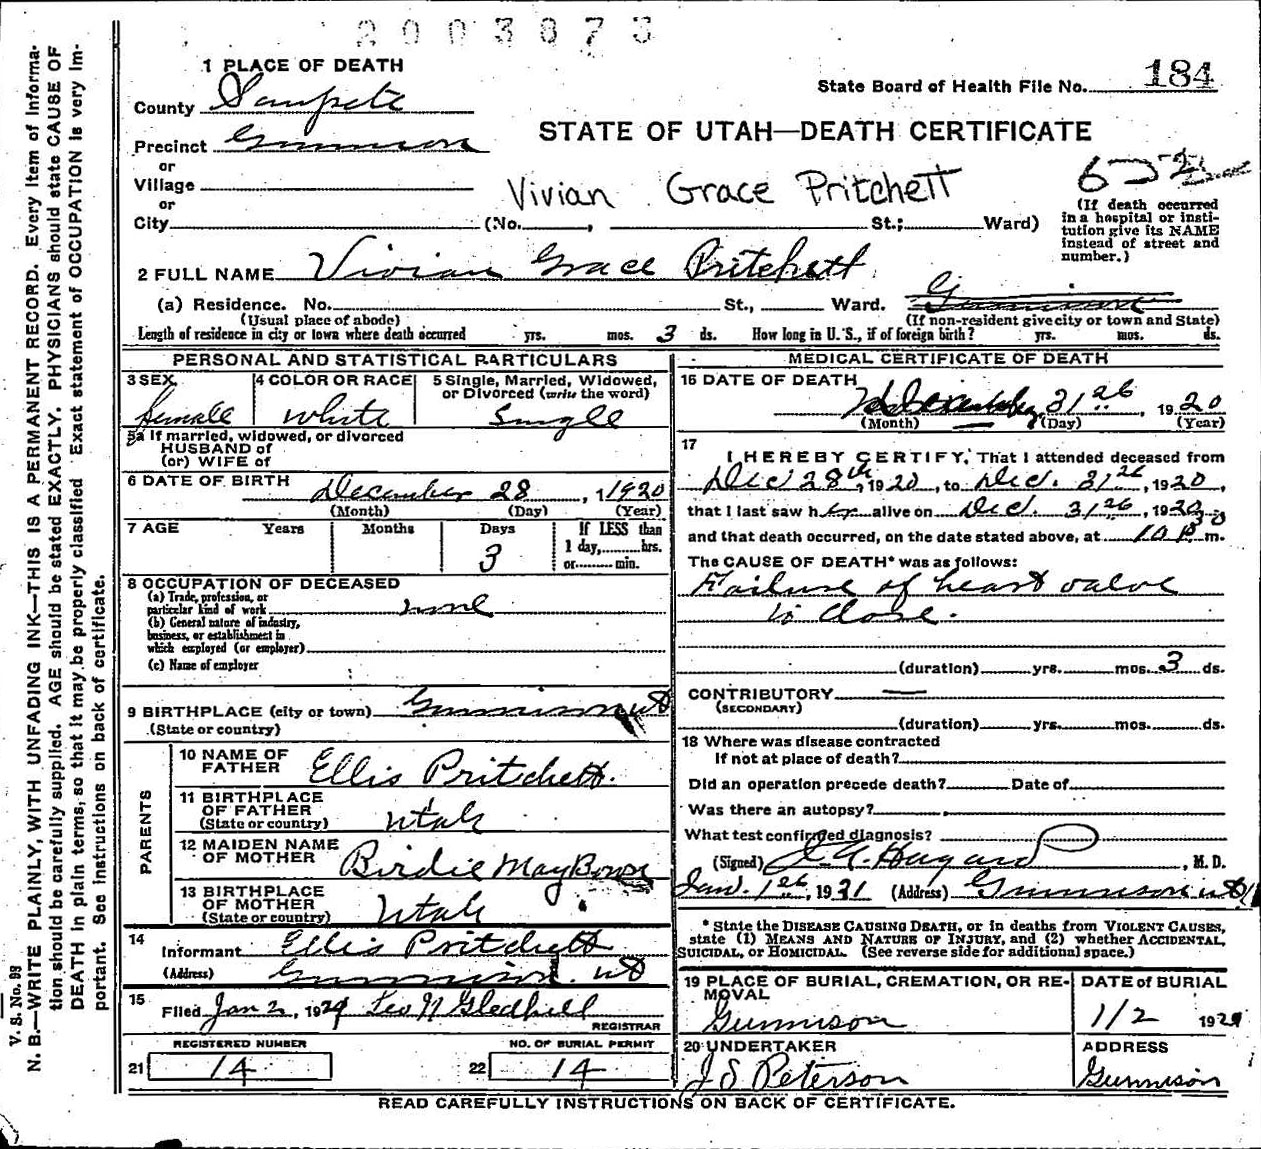 2003673
1 PLACE OF DEATH
State Board of Health File No. 184
County Sanpete
STATE OF UTAH—DEATH CERTIFICATE
Precinct Gunnison
or
Village
Vivian Grace Pritchett
or
City (No. , St.; Ward)
(If death occurred
in a hospital or insti-
tution give its NAME
instead of street and
number.)
2 FULL NAME Vivian Grace Pritchett
(a) Residence. No. St., Ward. Gunnison
(Usual place of abode)
(If non-resident give city or town and State)
Length of residence in city or town where death occurred yrs. mos. 3 ds. How long in U. S., if of foreign birth? yrs. mos. ds.
PERSONAL AND STATISTICAL PARTICULARS
3 SEX
female
4 COLOR OR RACE
White
5 Single, Married, Widowed,
or Divorced (write the word)
Single
5a If married, widowed, or divorced
HUSBAND of
(or) WIFE of
6 DATE OF BIRTH
December 28, 1920
(Month) (Day) (Year)
7 AGE Years Months Days If LESS than
3 1 day, hrs.
or min.
8 OCCUPATION OF DECEASED
(a) Trade, profession, or
particular kind of work none
(b) General nature of industry,
business, or establishment in
which employed (or employer)
(c) Name of employer
9 BIRTHPLACE (city or town) Gunnison Ut
(State or country)
PARENTS
10 NAME OF
FATHER Ellis Pritchett.
11 BIRTHPLACE
OF FATHER
(State or country) Utah
12 MAIDEN NAME
OF MOTHER Birdie May Bown
13 BIRTHPLACE
OF MOTHER
(State or country) Utah
14
Informant Ellis Pritchett
(Address) Gunnison. Ut
15
Filed Jan 2, 1921 Leo N Gledhill
REGISTRAR
REGISTERED NUMBER NO. OF BURIAL PERMIT
21 14 22 14
MEDICAL CERTIFICATE OF DEATH
16 DATE OF DEATH
December 31st, 1920
(Month) (Day) (Year)
17
I HEREBY CERTIFY, That I attended deceased from
Dec 28th, 1920, to Dec. 31st, 1920,
that I last saw her alive on Dec. 31st, 1920,
and that death occurred, on the date stated above, at 10 30 P m.
The CAUSE OF DEATH* was as follows:
Failure of heart valve
to close.
(duration) yrs. mos. 3 ds.
CONTRIBUTORY —
(SECONDARY)
(duration) yrs. mos. ds.
18 Where was disease contracted
If not at place of death?
Did an operation precede death? Date of
Was there an autopsy?
What test confirmed diagnosis?
(Signed) Hagard, M. D.
Jan. 1st, 1921 (Address) Gunnison Ut
* State the DISEASE CAUSING DEATH, or in deaths from VIOLENT CAUSES,
state (1) MEANS AND NATURE OF INJURY, and (2) whether ACCIDENTAL,
SUICIDAL, or HOMICIDAL. (See reverse side for additional space.)
19 PLACE OF BURIAL, CREMATION, OR RE-
MOVAL
Gunnison
DATE of BURIAL
1/2 1921
20 UNDERTAKER
J S Peterson
ADDRESS
Gunnison
READ CAREFULLY INSTRUCTIONS ON BACK OF CERTIFICATE.
V. S. No. 93
N. B.—WRITE PLAINLY, WITH UNFADING INK—THIS IS A PERMANENT RECORD. Every item of informa-
tion should be carefully supplied. AGE should be stated EXACTLY. PHYSICIANS should state CAUSE OF
DEATH in plain terms, so that it may be properly classified. Exact statement of OCCUPATION is very im-
portant. See instructions on back of certificate.